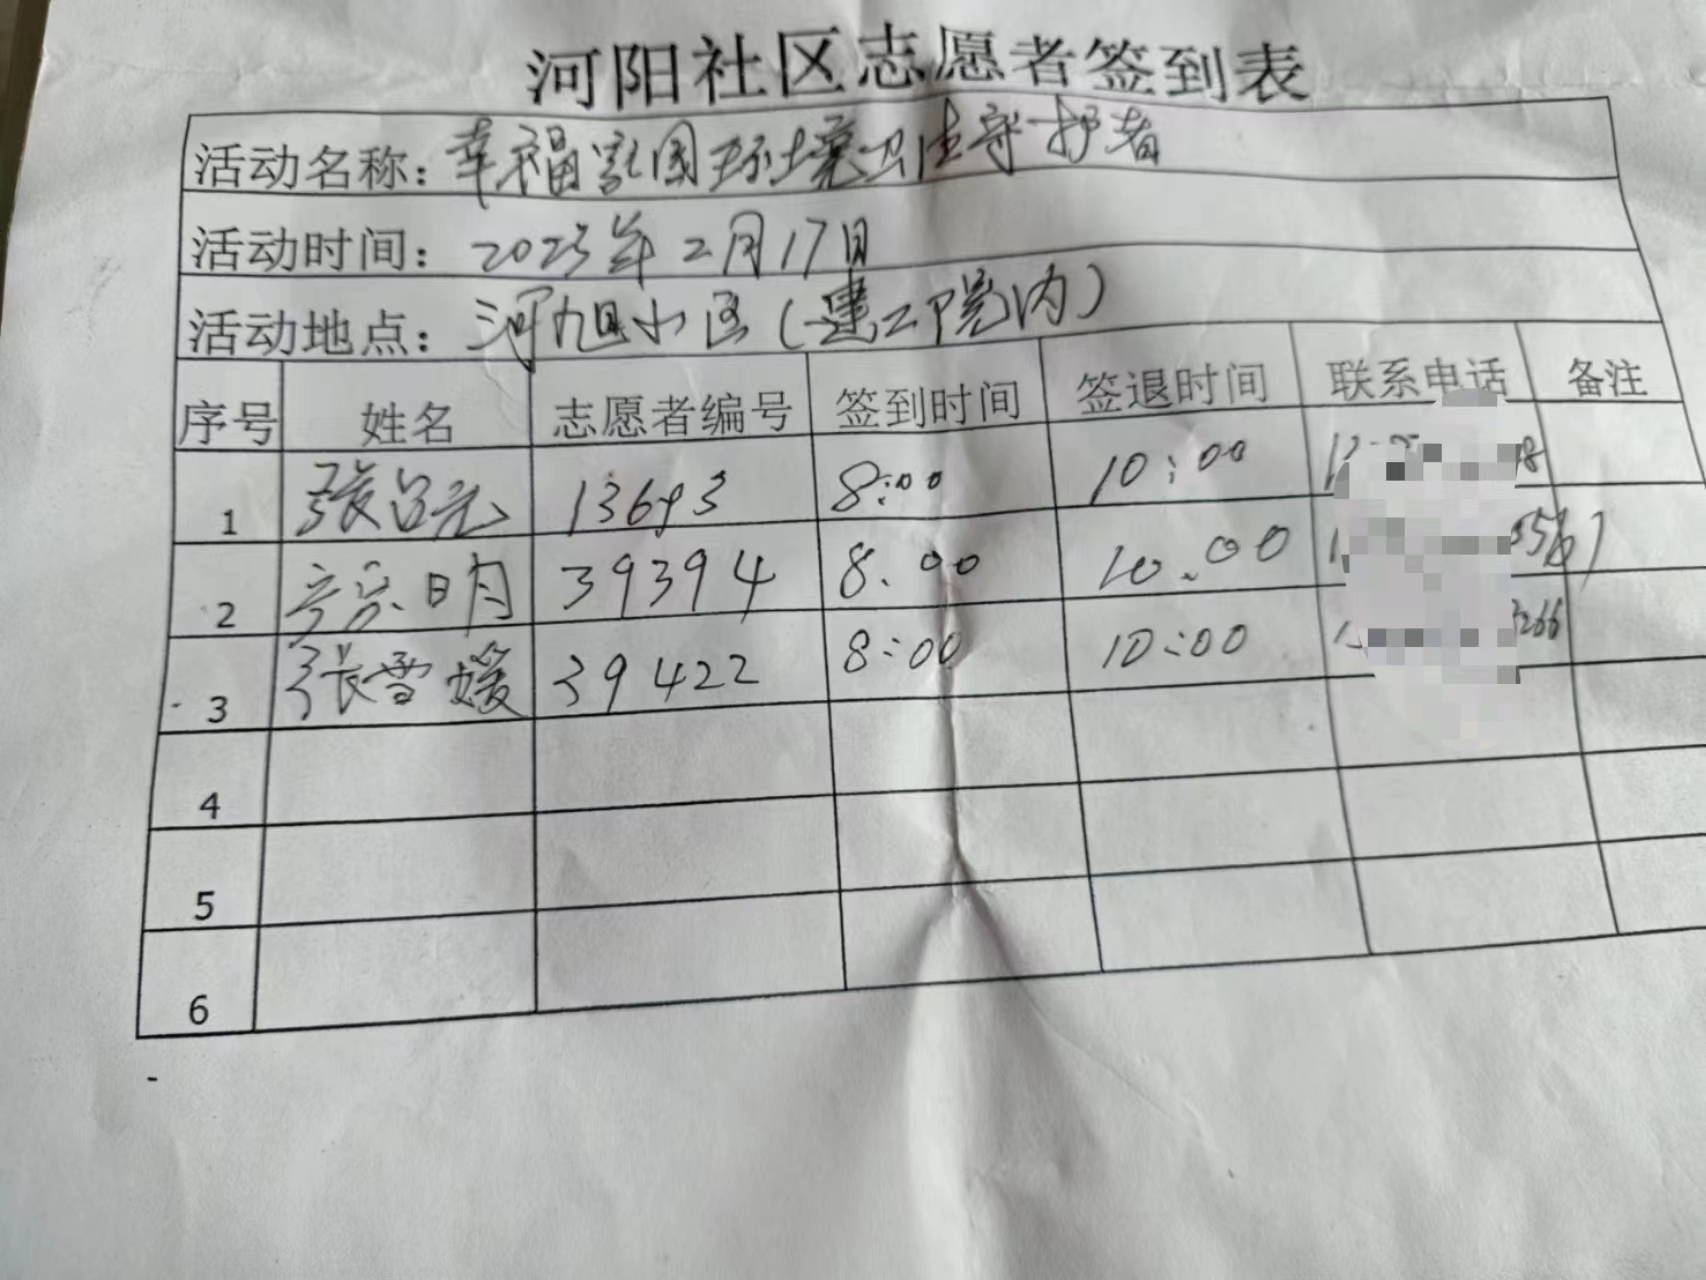 河阳社区志愿者签到表
活动名称：幸福家园环境卫生守护者
活动时间：2025年2月17日
活动地点：河旭小区（建工院内）
序号 姓名 志愿者编号 签到时间 签退时间 联系电话 备注
1 張 元 8:00 10:00
2 明 39394 8.00 10.00
3 张雪媛 39422 8:00 10:00 266
4
5
6